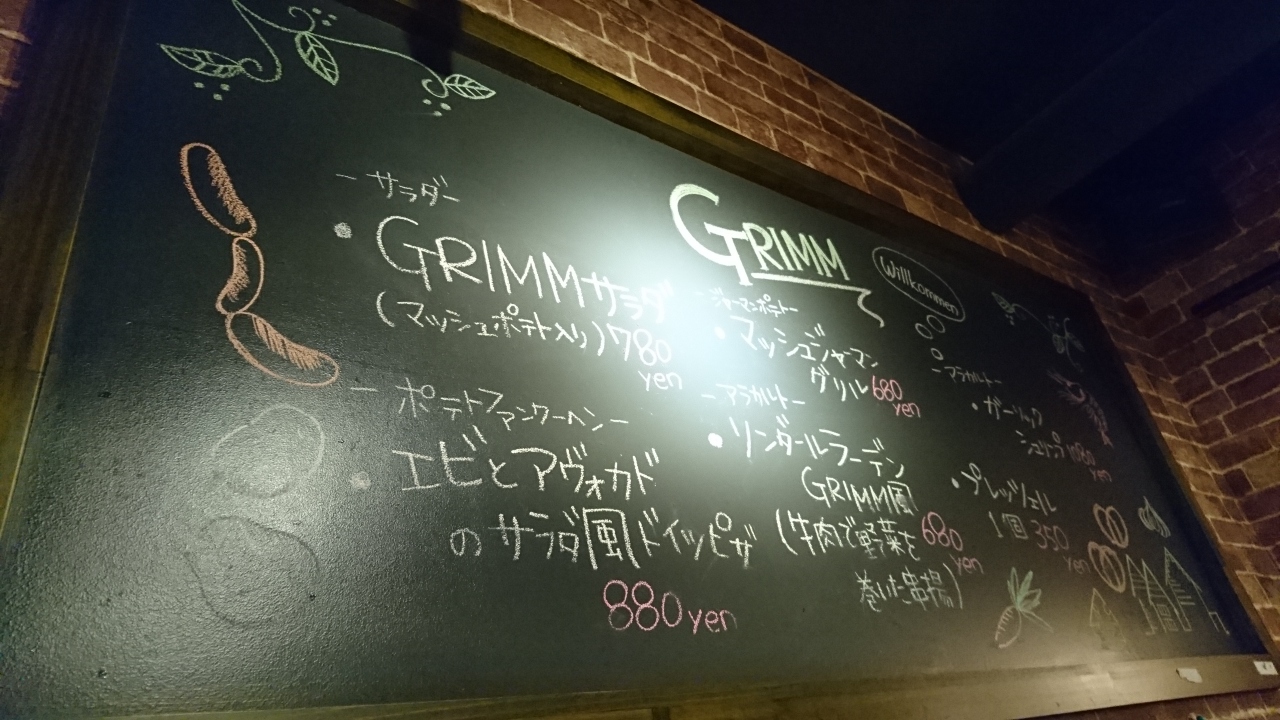 GRIMM
Willkommen
- サラダ -
・GRIMMサラダ
(マッシュポテト入り) 780
yen
- ポテトファンクーヘン -
・エビとアヴォカド
のサラダ風ドイツピザ
880 yen
- ジャーマンポテト -
・マッシュジャーマン
グリル 680
yen
- アラカルト -
・リンダールラーデン
GRIMM風
(牛肉で野菜を 680
yen
巻いた串揚)
- アラカルト -
・ガーリック
シュリンプ 1080
yen
・プレッツェル
1個 350
yen